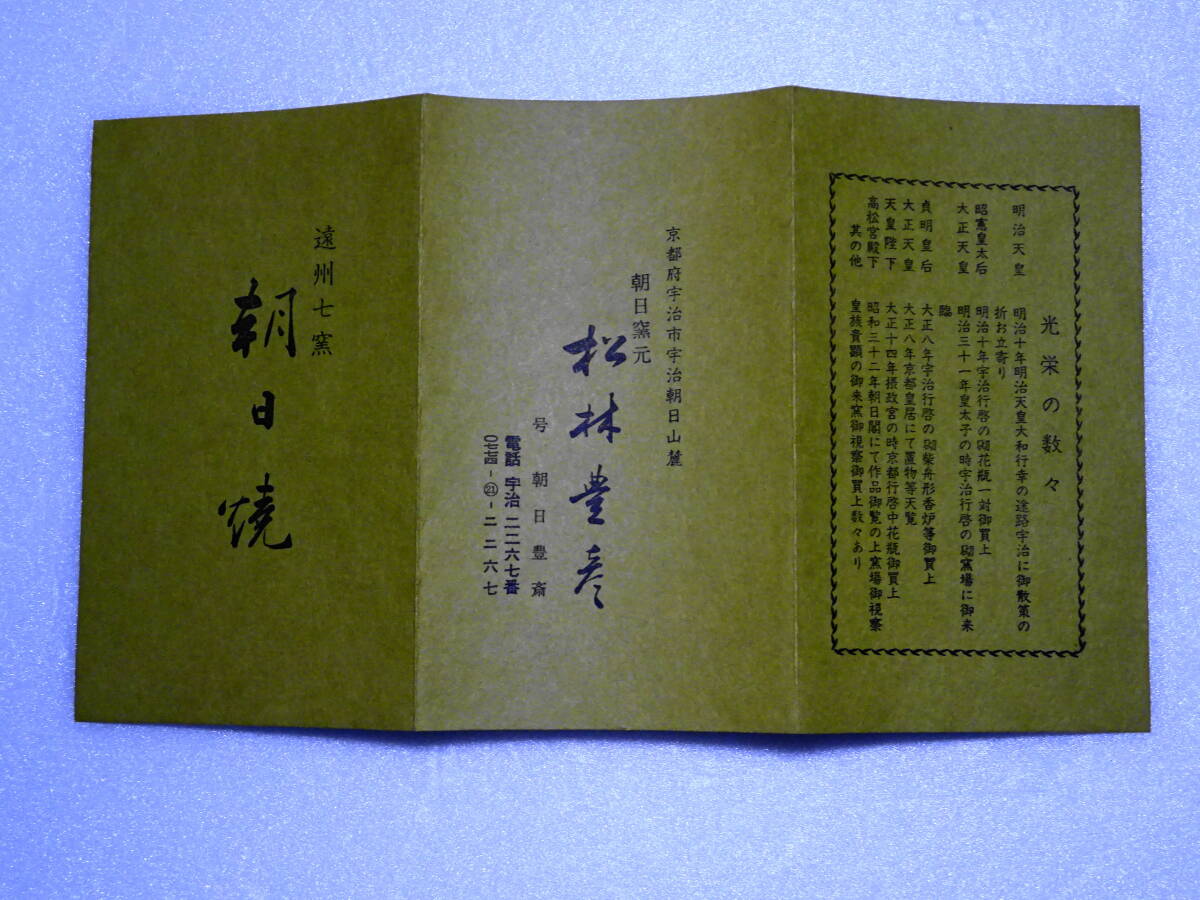 光栄の数々
明治天皇　明治十年明治天皇大和行幸の途路宇治に御散策の
折お立寄り
昭憲皇太后　明治十年宇治行啓の砌花瓶一対御買上
大正天皇　明治三十一年皇太子の時宇治行啓の砌窯場に御来
臨
貞明皇后　大正八年宇治行啓の砌柴舟形香炉等御買上
大正天皇　大正八年京都皇居にて置物等天覧
天皇陛下　大正十四年摂政宮の時京都行啓中花瓶御買上
高松宮殿下　昭和三十二年朝日閣にて作品御覧の上窯場御視察
其の他　皇族貴顕の御来窯御視察御買上数々あり
京都府宇治市宇治朝日山麓
朝日窯元
松林豊彦
号　朝日豊斎
電話　宇治　二二六七番
〇七七四-㉑-二二六七
遠州七窯
朝日焼